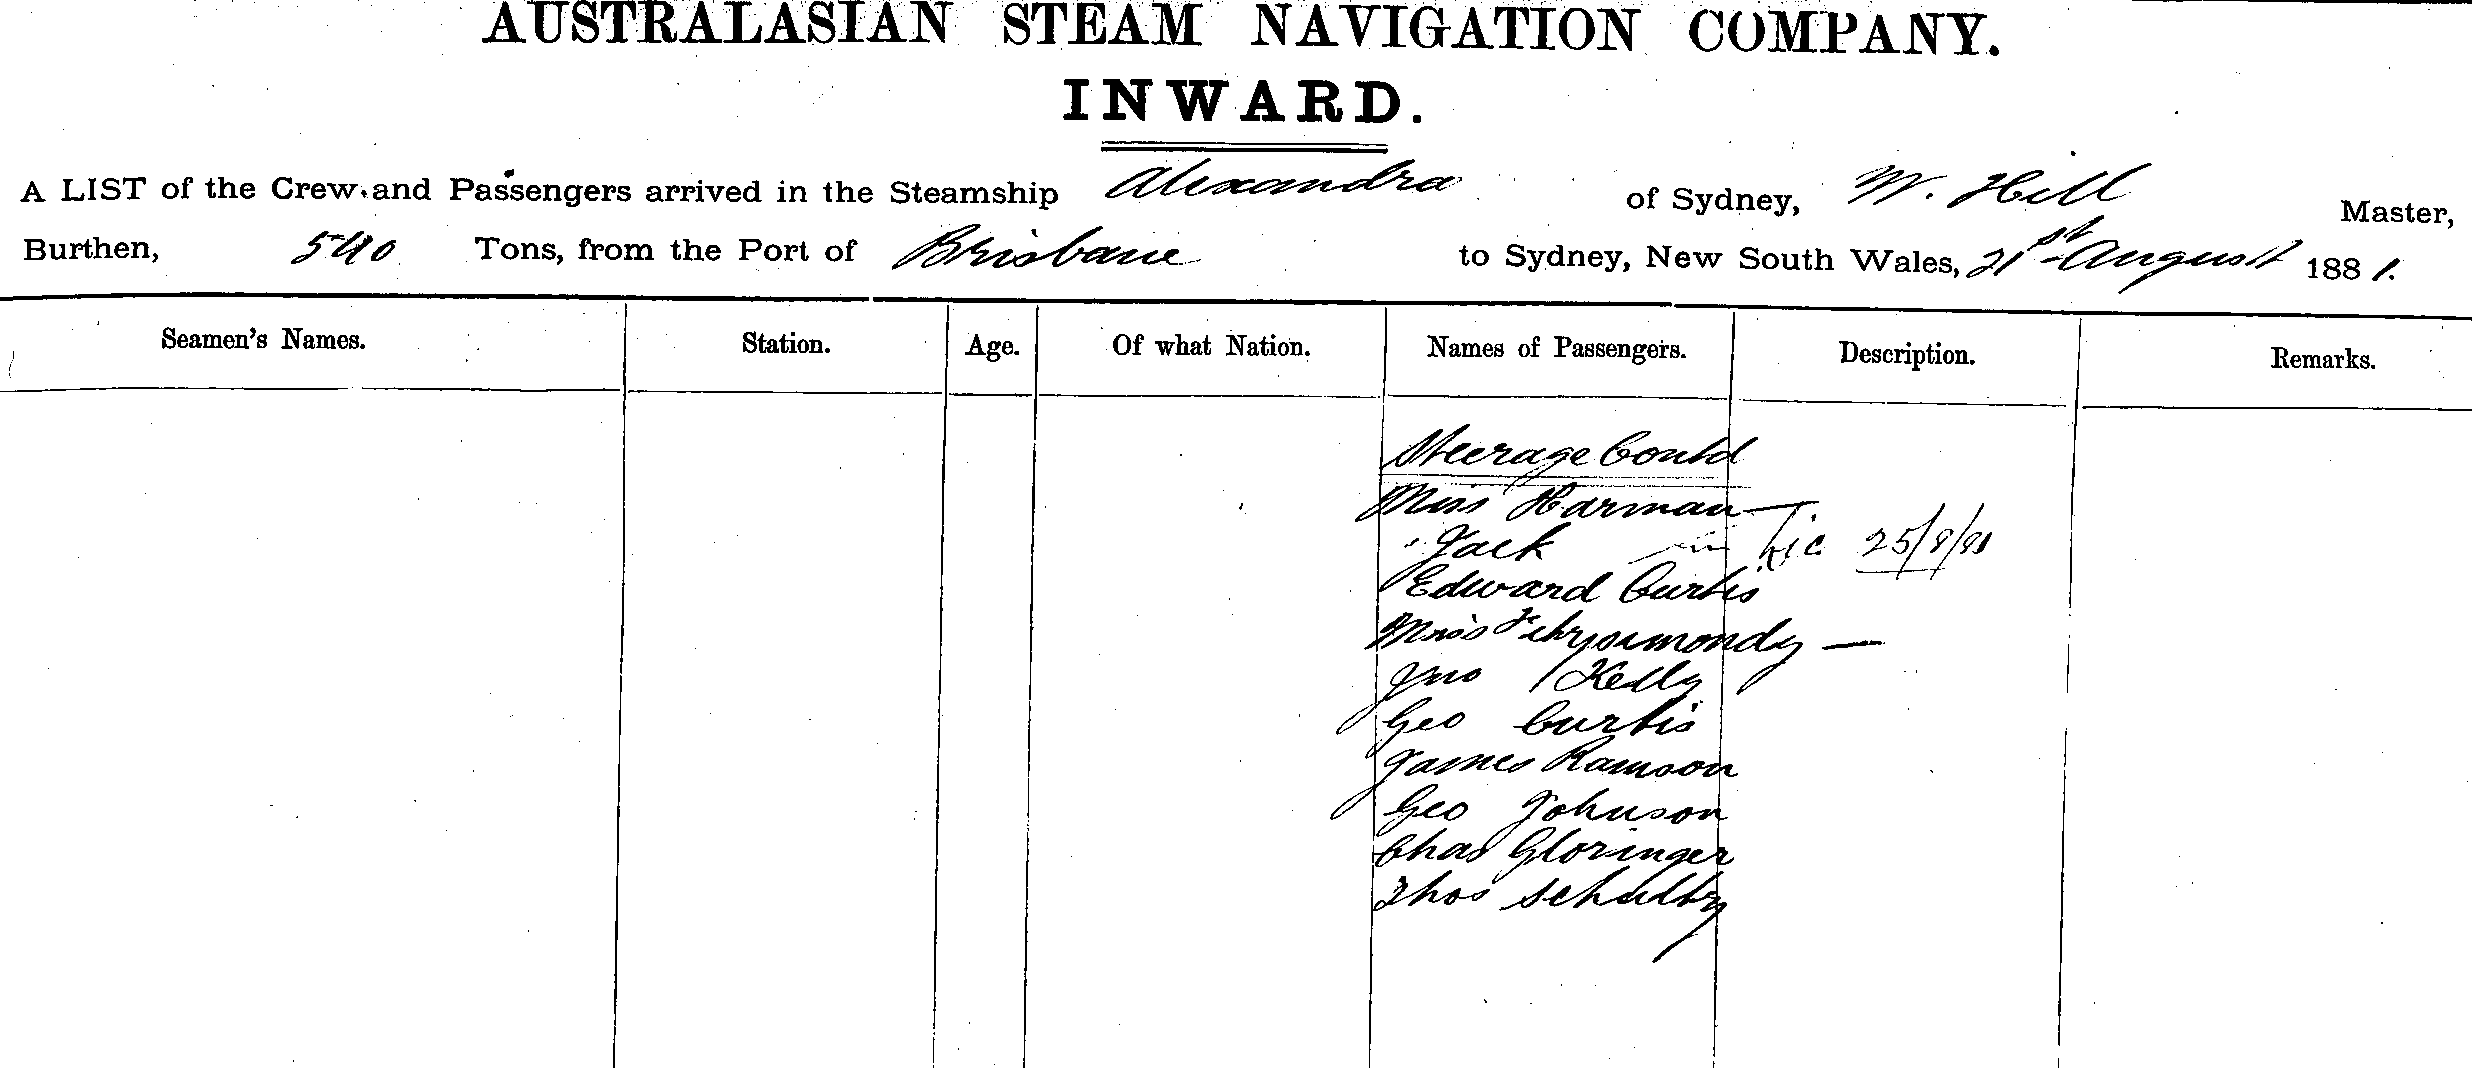 AUSTRALASIAN STEAM NAVIGATION COMPANY.
INWARD.
A LIST of the Crew and Passengers arrived in the Steamship Alexandra of Sydney, W. Hill Master,
Burthen, 540 Tons, from the Port of Brisbane to Sydney, New South Wales, 21st August 1881.
Seamen's Names. Station. Age. Of what Nation. Names of Passengers. Description. Remarks.
Steerage Contd
Miss Harman
" Jack 25/8/81
Edward Curtis
Jno Kelly
Geo Curtis
James Ramson
Geo Johnson
Chas Gloringer
Thos